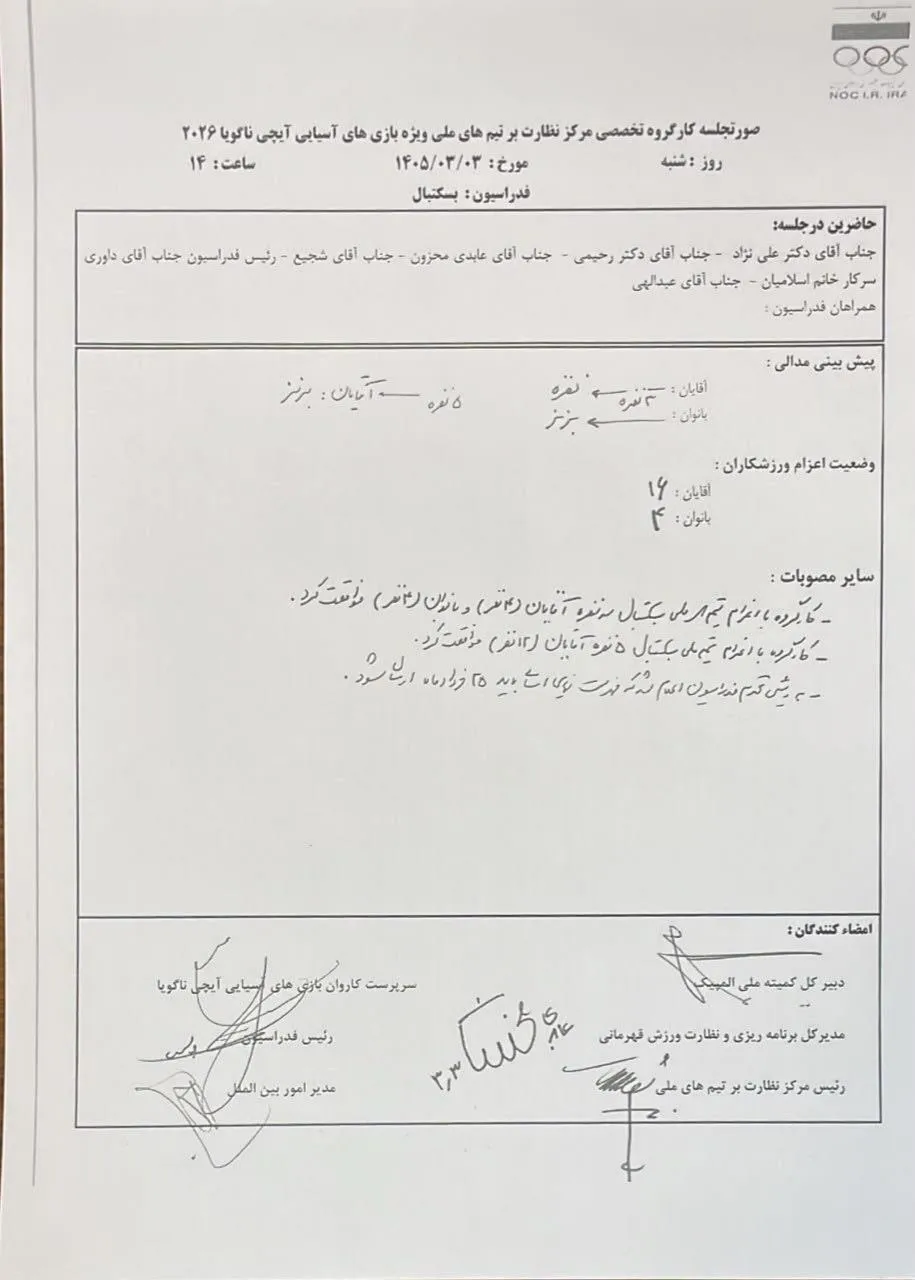 NOC I.R. IRA
صورتجلسه کارگروه تخصصی مرکز نظارت بر تیم های ملی ویژه بازی های آسیایی آیچی ناگویا ۲۰۲۶
روز : شنبه مورخ : ۱۴۰۵/۰۳/۰۳ ساعت : ۱۴
فدراسیون : بسکتبال
حاضرین درجلسه:
جناب آقای دکتر علی نژاد - جناب آقای دکتر رحیمی - جناب آقای عابدی محزون - جناب آقای شجیع - رئیس فدراسیون جناب آقای داوری
سرکار خانم اسلامیان - جناب آقای عبدالهی
همراهان فدراسیون :
پیش بینی مدالی :
آقایان : ۳ نفره ← نقره ۵ نفره ← آقایان : برنز
بانوان : ← برنز
وضعیت اعزام ورزشکاران :
آقایان : ۱۶
بانوان : ۴
سایر مصوبات :
- کارگروه با اعزام تیم های ملی بسکتبال سه نفره آقایان (۴ نفر) و بانوان (۴ نفر) موافقت کرد .
- کارگروه با اعزام تیم ملی بسکتبال ۵ نفره آقایان (۱۲ نفر) موافقت کرد .
- به رئیس محترم فدراسیون اعلام شد که فهرست نهایی اسامی باید ۲۵ خرداد ماه ارسال شود .
امضاء کنندگان :
دبیر کل کمیته ملی المپیک سرپرست کاروان بازی های آسیایی آیچی ناگویا
مدیرکل برنامه ریزی و نظارت ورزش قهرمانی رئیس فدراسیون
رئیس مرکز نظارت بر تیم های ملی مدیر امور بین الملل
۳٫۳